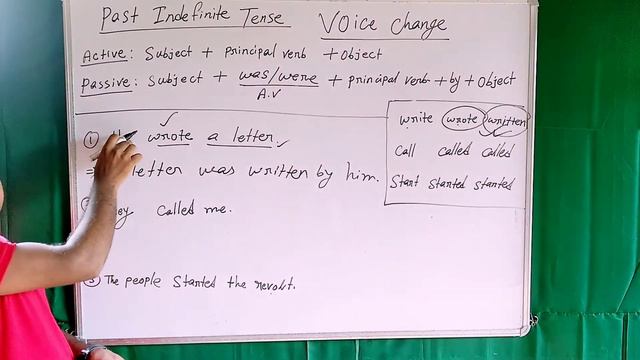 Past Indefinite Tense Voice Change
Active: Subject + principal verb + Object
Passive: Subject + was/were + principal verb + by + Object
A.V
① wrote a letter.
⇒ letter was written by him.
called me.
③ The people started the revolt.
write wrote written
call called called
Start Started Started